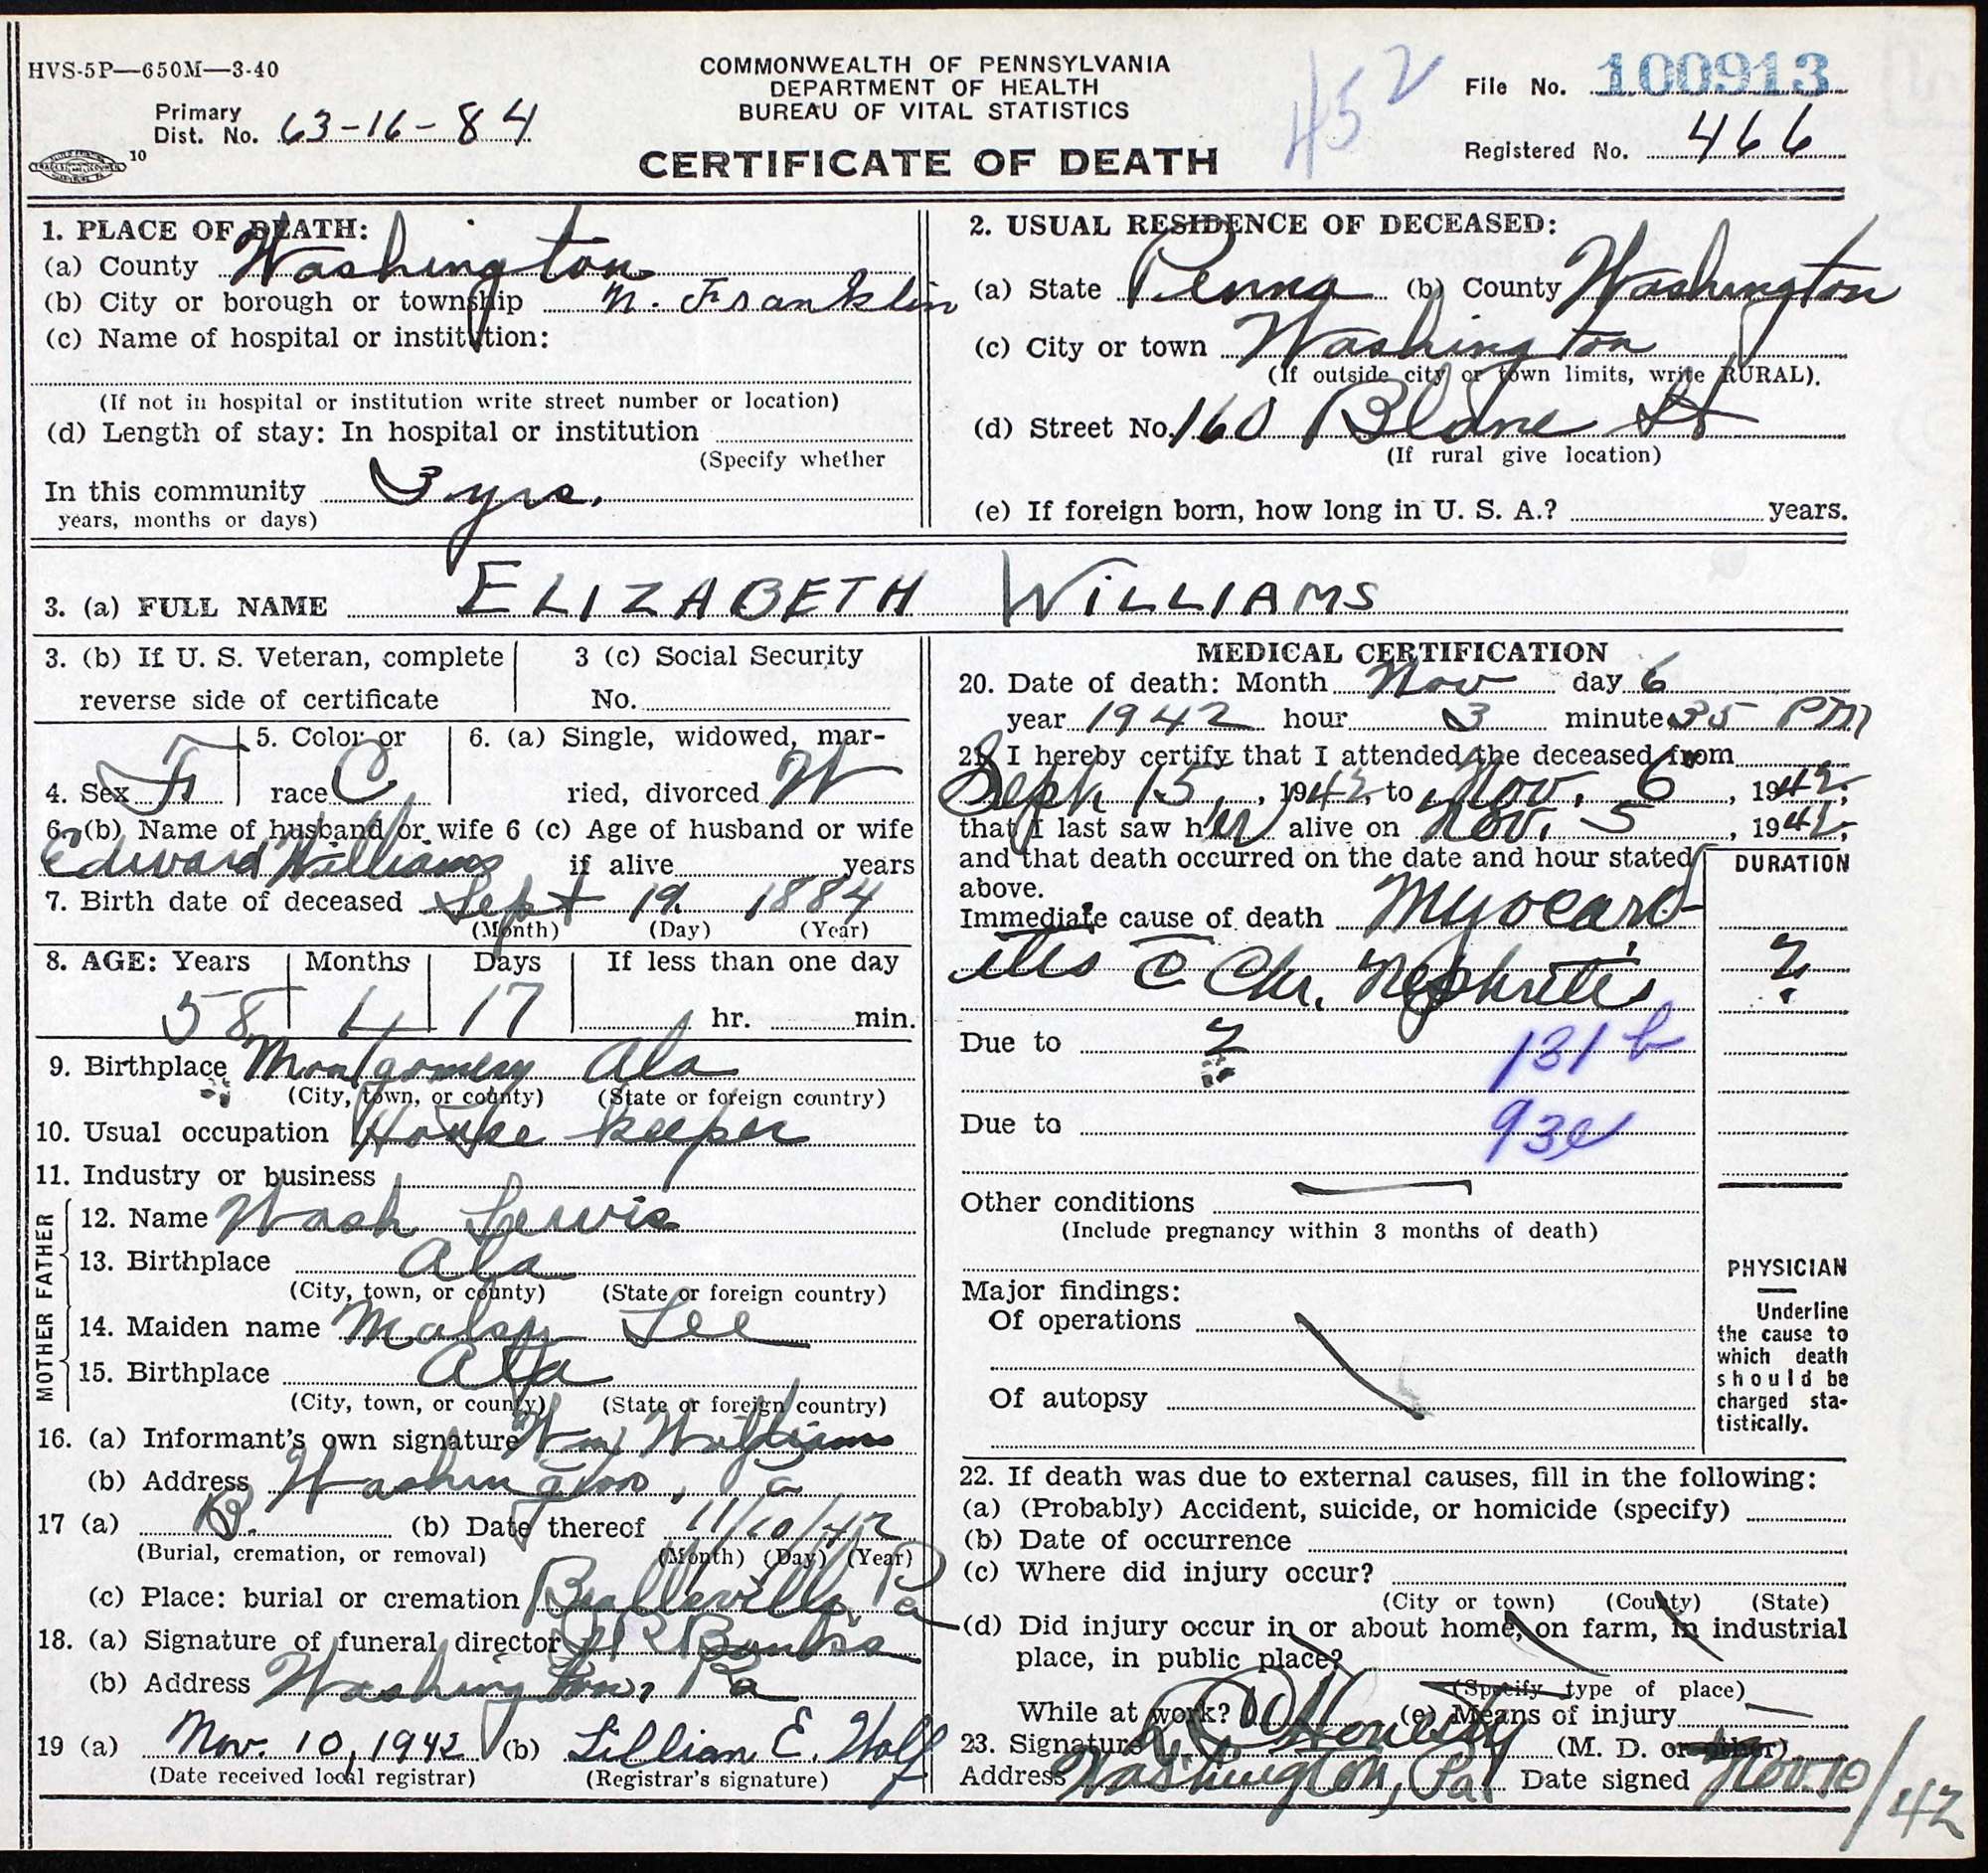 HVS-5P—650M—3-40
COMMONWEALTH OF PENNSYLVANIA
DEPARTMENT OF HEALTH
BUREAU OF VITAL STATISTICS
CERTIFICATE OF DEATH
452
File No. 100913
Primary
Dist. No. 63-16-84
Registered No. 466
10
1. PLACE OF DEATH:
(a) County Washington
(b) City or borough or township N. Franklin
(c) Name of hospital or institution:
(If not in hospital or institution write street number or location)
(d) Length of stay: In hospital or institution
(Specify whether
In this community 3 yrs.
years, months or days)
2. USUAL RESIDENCE OF DECEASED:
(a) State Penna (b) County Washington
(c) City or town Washington
(If outside city or town limits, write RURAL).
(d) Street No. 160 Blaine St
(If rural give location)
(e) If foreign born, how long in U. S. A.? years.
3. (a) FULL NAME ELIZABETH WILLIAMS
3. (b) If U. S. Veteran, complete
reverse side of certificate
3 (c) Social Security
No.
4. Sex F
5. Color or
race C
6. (a) Single, widowed, mar-
ried, divorced W
6 (b) Name of husband or wife
Edward Williams
6 (c) Age of husband or wife
if alive years
7. Birth date of deceased Sept 19 1884
(Month) (Day) (Year)
8. AGE: Years Months Days If less than one day
58 1 17 hr. min.
9. Birthplace Montgomery Ala
(City, town, or county) (State or foreign country)
10. Usual occupation House keeper
11. Industry or business
FATHER
12. Name Wash Lewis
13. Birthplace Ala
(City, town, or county) (State or foreign country)
MOTHER
14. Maiden name Malsy Lee
15. Birthplace Ala
(City, town, or county) (State or foreign country)
16. (a) Informant's own signature Wm Williams
(b) Address Washington, Pa
17 (a) B. (b) Date thereof 11/10/42
(Burial, cremation, or removal) (Month) (Day) (Year)
(c) Place: burial or cremation Beallsville, Pa
18. (a) Signature of funeral director R Banks
(b) Address Washington, Pa
19 (a) Nov. 10, 1942 (b) Lillian E. Wolf
(Date received local registrar) (Registrar's signature)
MEDICAL CERTIFICATION
20. Date of death: Month Nov day 6
year 1942 hour 3 minute 35 PM
21. I hereby certify that I attended the deceased from
Sept. 15, 1942, to Nov. 6, 1942;
that I last saw her alive on Nov. 5, 1942;
and that death occurred on the date and hour stated
above.
DURATION
Immediate cause of death Myocard-
itis c Chr. Nephritis ?
Due to ? 131 b
Due to 93e
Other conditions
(Include pregnancy within 3 months of death)
Major findings:
Of operations
Of autopsy
PHYSICIAN
Underline
the cause to
which death
should be
charged sta-
tistically.
22. If death was due to external causes, fill in the following:
(a) (Probably) Accident, suicide, or homicide (specify)
(b) Date of occurrence
(c) Where did injury occur?
(City or town) (County) (State)
(d) Did injury occur in or about home, on farm, in industrial
place, in public place?
(Specify type of place)
While at work? (e) Means of injury
23. Signature (M. D. or other)
Address Washington, Pa Date signed Nov. 10/42